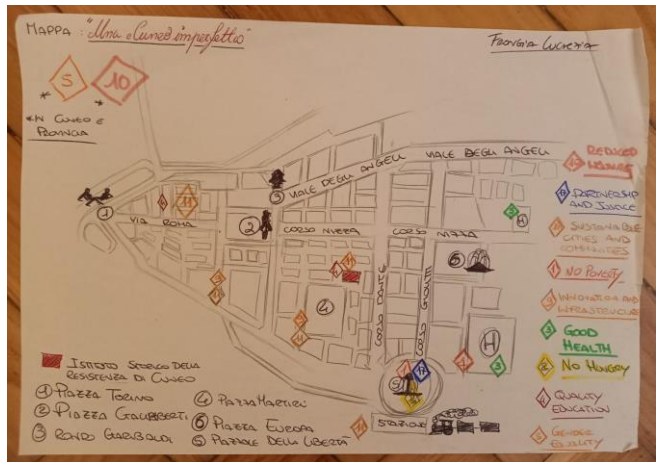 MAPPA: "Una Cuneo imperfetta"
5
10
* IN CUNEO E
PROVINCIA
VIALE DEGLI ANGELI
VIALE DEGLI ANGELI
VIA ROMA
CORSO NIZZA
CORSO NIZZA
CORSO DANTE
CORSO GIOLITTI
1
2
3
4
5
6
11
H
H
STAZIONE
REDUCED
PARTNERSHIP
AND JUSTICE
SUSTAINABLE
CITIES AND
COMMUNITIES
1 NO POVERTY
9 INNOVATION AND
INFRASTRUCTURE
3 GOOD
HEALTH
2 NO HUNGRY
4 QUALITY
EDUCATION
5 GENDER
EQUALITY
ISTITUTO STORICO DELLA
RESISTENZA DI CUNEO
1 PIAZZA TORINO
2 PIAZZA GALIMBERTI
3 RONDO GARIBALDI
4 PIAZZA MARTIRI
6 PIAZZA EUROPA
5 PIAZZALE DELLA LIBERTÀ